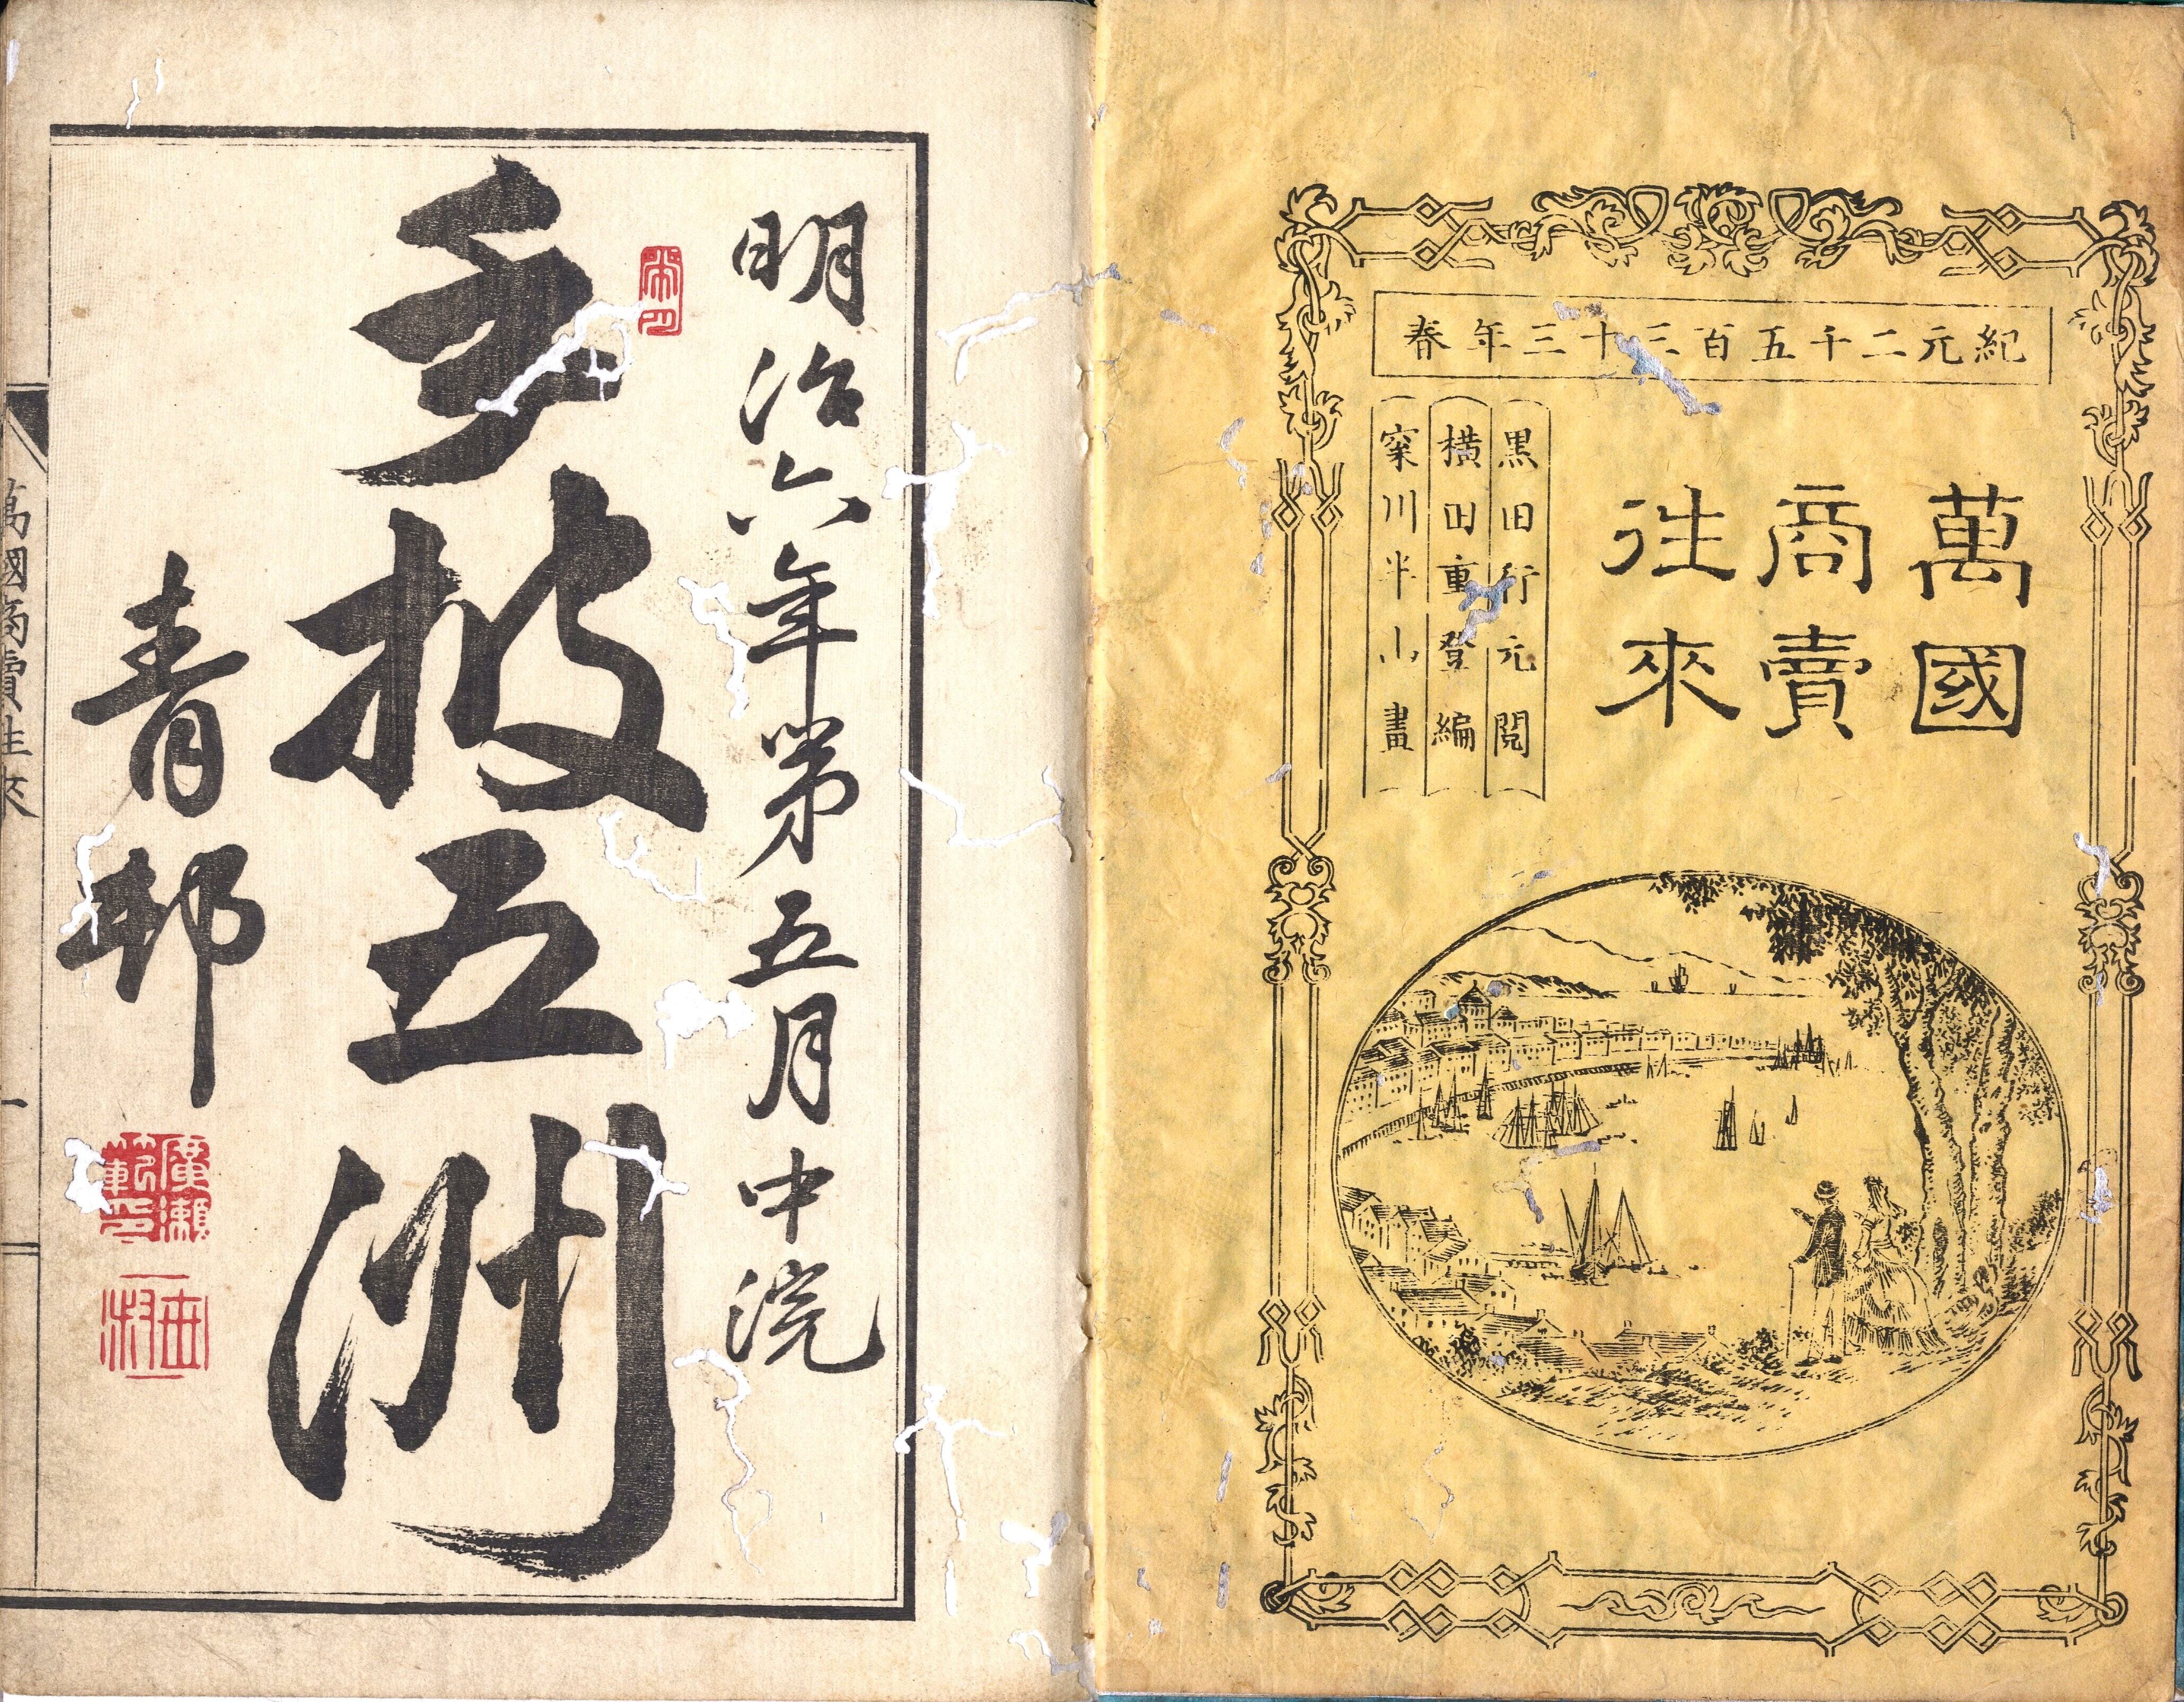 紀元二千五百三十三年春
萬國
商賣
往來
黒田行元閲
横田重登編
松川半山畫
明治六年第五月中浣
手披五洲
青邨
廣瀬範印
世叔
萬國商賣往來 一